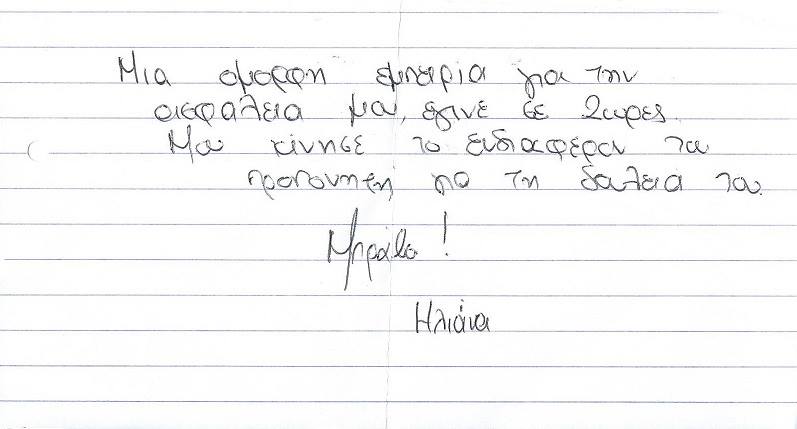 Μια ομορφη εμπειρία για την
ασφάλεια μου, έγινε σε 2 ωρες.
Μου κίνησε το ενδιαφέρον του
προπονητή για τη δουλεια του.
Μπράβο!
Ηλιάνα